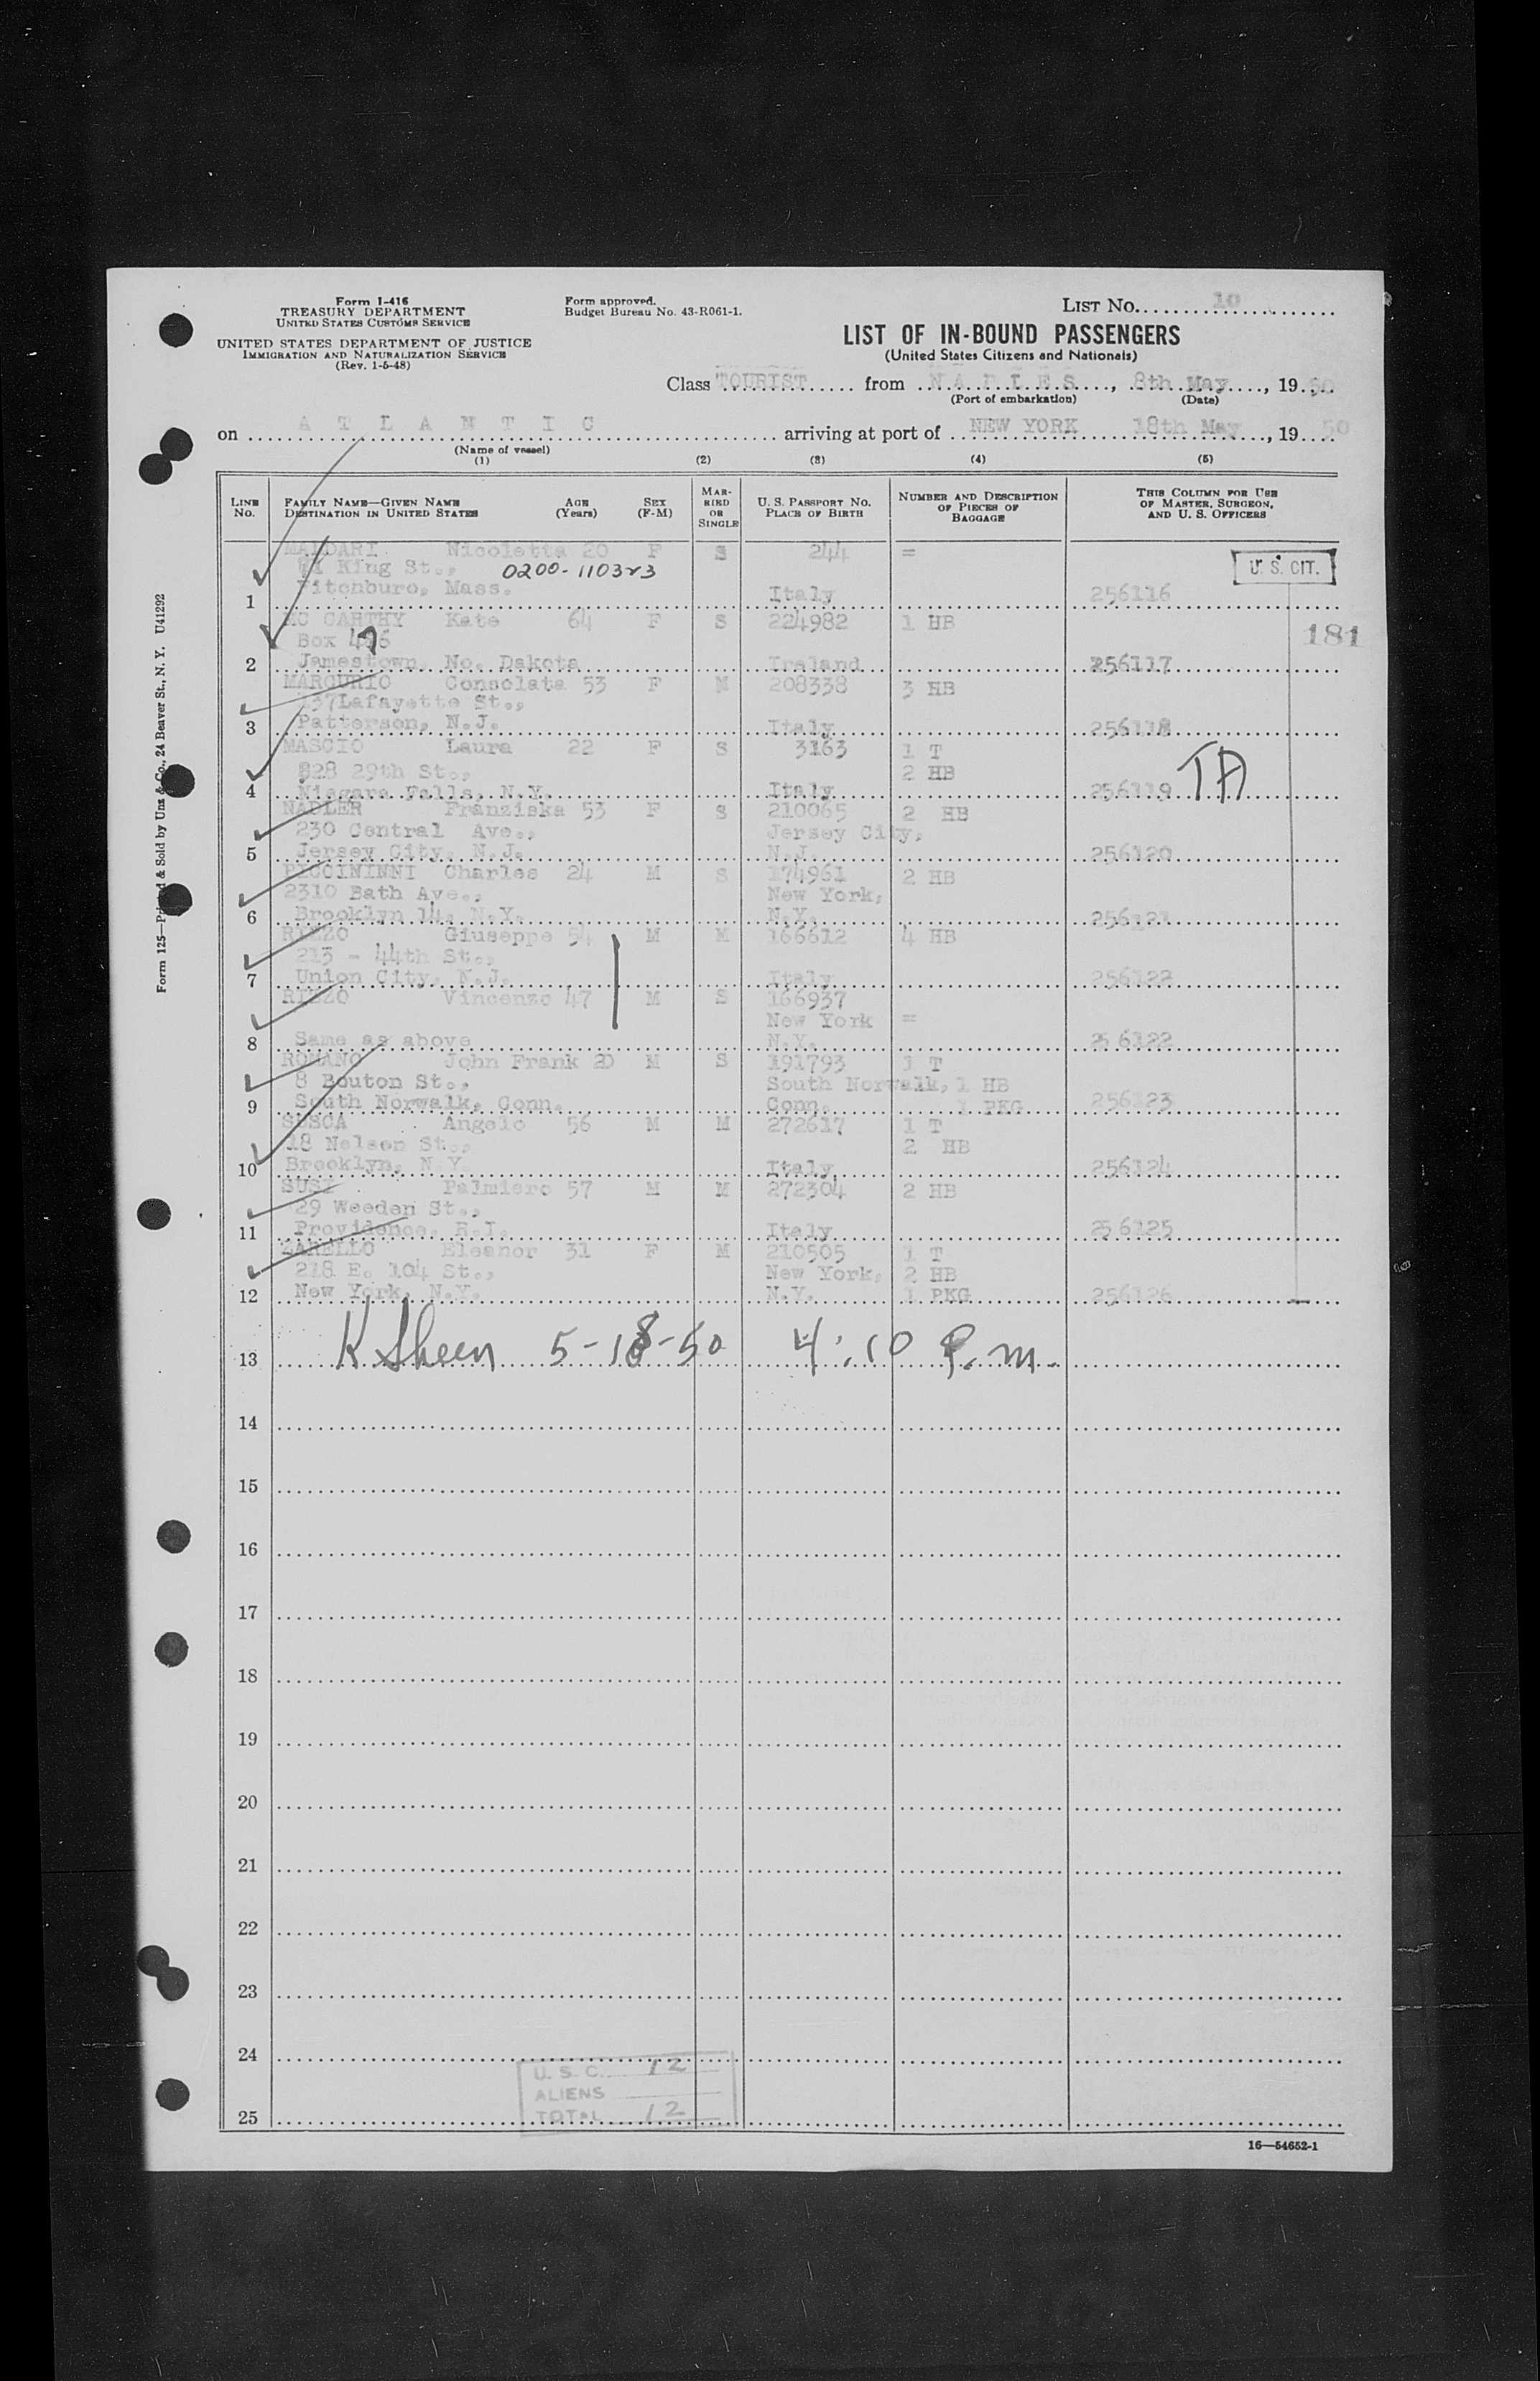 Form I-416
TREASURY DEPARTMENT
UNITED STATES CUSTOMS SERVICE
UNITED STATES DEPARTMENT OF JUSTICE
IMMIGRATION AND NATURALIZATION SERVICE
(Rev. 1-5-48)
Form approved.
Budget Bureau No. 43-R061-1.
LIST NO. 10
LIST OF IN-BOUND PASSENGERS
(United States Citizens and Nationals)
Class TOURIST from NAPLES, 8th May, 1950
(Port of embarkation) (Date)
on ATLANTIC arriving at port of NEW YORK 18th May, 1950
(Name of vessel)
(1) (2) (3) (4) (5)
LINE NO. FAMILY NAME—GIVEN NAME DESTINATION IN UNITED STATES AGE (Years) SEX (F-M) MARRIED OR SINGLE U. S. PASSPORT NO. PLACE OF BIRTH NUMBER AND DESCRIPTION OF PIECES OF BAGGAGE THIS COLUMN FOR USE OF MASTER, SURGEON, AND U. S. OFFICERS
Nicoletta 20 F S 244 =
King St., 0200-110323 U. S. CIT.
1 Fitchburg, Mass. Italy 256116
MC CARTHY Kate 64 F S 224982 1 HB 181
Box
2 Jamestown, No. Dakota Ireland 256117
MARCURIO Consolata 53 F M 208338 3 HB
237Lafayette St.,
3 Patterson, N.J. Italy 256118
MASCIO Laura 22 F S 3163 1 T
828 29th St., 2 HB TA
4 Niagara Falls, N.Y. Italy 256119
NADLER Franziska 53 F S 210065 2 HB
230 Central Ave., Jersey City,
5 Jersey City, N.J. N.J. 256120
PICCININNI Charles 24 M S 174961 2 HB
2310 Bath Ave., New York,
6 Brooklyn 14, N.Y. N.Y. 256121
RIZZO Giuseppe 54 M M 166612 4 HB
213 - 44th St.,
7 Union City, N.J. Italy 256122
RIZZO Vincenzo 47 M S 166937
New York =
8 Same as above N.Y. 256122
ROMANO John Frank 20 M S 191793 1 T
8 Bouton St., South Norwalk, 1 HB
9 South Norwalk, Conn. Conn. 1 PKG 256123
SUSCA Angelo 56 M M 272617 1 T
18 Nelson St., 2 HB
10 Brooklyn, N.Y. Italy 256124
SUSI Palmiero 57 M M 272304 2 HB
29 Weeden St.,
11 Providence, R.I. Italy 256125
ZARELLO Eleanor 31 F M 210505 1 T
218 E. 104 St., New York, 2 HB
12 New York, N.Y. N.Y. 1 PKG 256126
13 K Sheen 5-18-50 4:10 P.m.
14
15
16
17
18
19
20
21
22
23
24
U. S. C. 12
ALIENS
25 TOTAL 12
16—54652-1
Form 125—Printed & Sold by Unz & Co., 24 Beaver St., N. Y. U41292